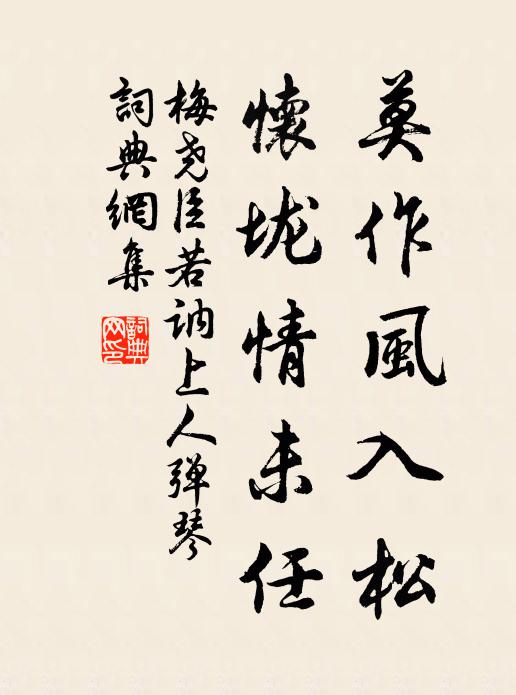 莫作風入松
懷垅情未任
梅尧臣若訥上人弹琴
詞典網集
詞典网印